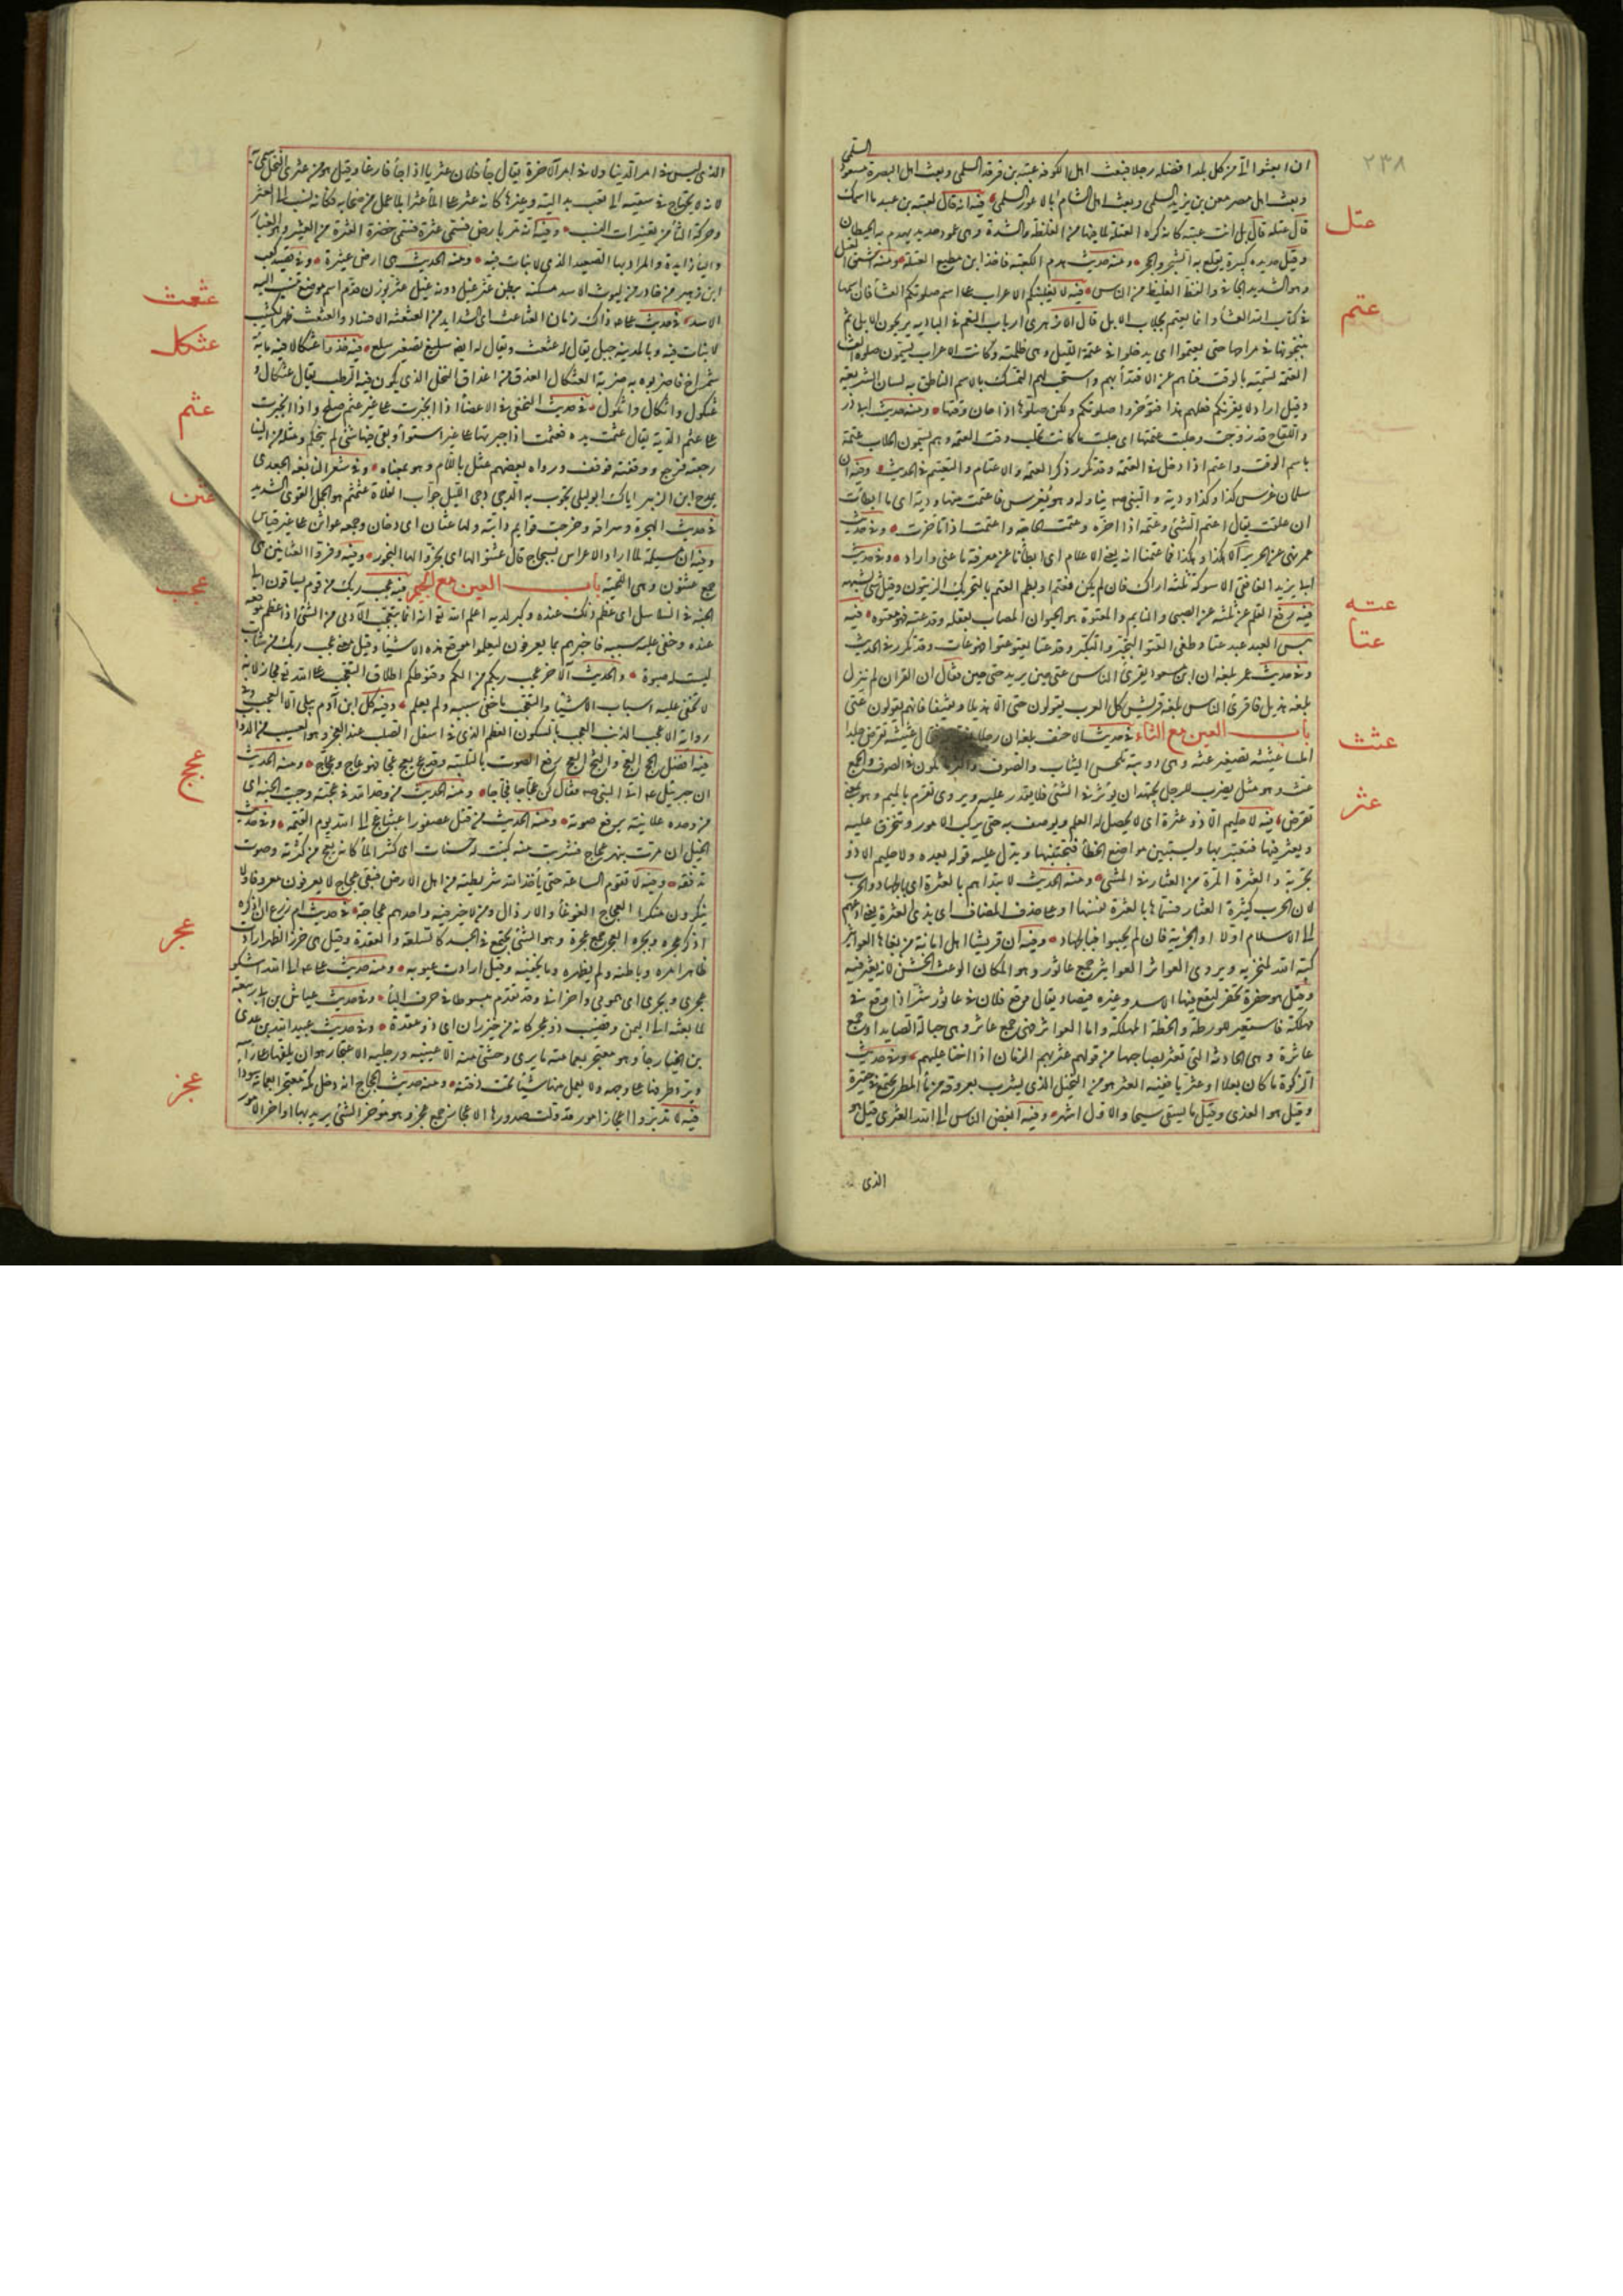 ٢٣٨
السلمى
ان ابعثوا الىّ من كل بلد افضله رجلا فبعث اهل الكوفة عتبة بن فرقد السلمى وبعث اهل البصرة مجاشع بن مسعود
وبعث اهل مصر معن بن يزيد السلمى وبعث اهل الشام ابا الاعور السلمى فيه انه قال لعتبة بن عبد ما اسمك
عتل
قال عتلة قال بل انت عتبة كانه كره العتلة لما فيها من الغلظة والشدة وهى عمود حديد يهدم به الحيطان
وقيل حديدة كبيرة يقلع به الشجر والحجر ومنه حديث هدم الكعبة فاخذ ابن مطيع العتلة ومنه اشتق العتل
وهو الشديد الجافى والفظ الغليظ من الناس فيه لا يغلبنكم الاعراب على اسم صلوتكم العشا فان اسمها
عتم
فى كتاب الله العشا وانما يعتم بحلاب الابل قال الازهرى ارباب النعم فى البادية يريحون الابل ثم
ينيخونها فى مراحها حتى يعتموا اى يدخلوا فى عتمة الليل وهى ظلمته وكانت الاعراب يسمون صلوة العشا
العتمة تسمية بالوقت فنهاهم عن الاقتدا بهم واستحب لهم التمسك بالاسم الناطق به لسان الشريعة
وقيل اراد لا يغرنكم فعلهم هذا فتؤخروا صلوتكم ولكن صلوها اذا حان وقتها ومنه حديث ابى ذر
واللقاح قد روحت وحلبت عتمتها اى حلبت ما كانت تحلب وقت العتمة وهم يسمون الحلاب عتمة
باسم الوقت واعتم اذا دخل فى العتمة وقد تكرر ذكر العتمة والاعتام والتعتيم فى الحديث وفيه ان
سلمان غرس كذا وكذا ودية والنبى يناوله وهو يغرس فما عتمت منها ودية اى ما ابطأت
ان علقت يقال اعتم الشئ وعتمه اذا اخره وعتمت الحاجة واعتمت اذا تأخرت وفى حديث
عمر نهى عن الحرير الا هكذا وهكذا فما عتمنا انه يعنى الاعلام اى ما ابطأنا عن معرفة ما عنى واراد وفى حديث
ابى زيد الغافقى الاسوكة ثلثة اراك فان لم يكن فعتم او بطم العتم بالتحريك الزيتون وقيل شئ يشبهه
عته
فيه رفع القلم عن ثلثة عن الصبى والنايم والمعتوه هو المجنون المصاب بعقله وقد عته فهو معتوه فيه
عتا
بئس العبد عبد عتا وطغى العتو التجبر والتكبر وقد عتا يعتو عتوا فهو عات وقد تكرر فى الحديث
وفى حديث عمر بلغه ان ابن مسعود يقرئ الناس عتى حين يريد حتى حين فقال ان القران لم ينزل
بلغة هذيل فاقرئ الناس بلغة قريش كل العرب يقولون حتى الا هذيلا وثقيفا فانهم يقولون عتى
عثث
باب العين مع الثاء فى حديث الاحنف بلغه ان رجلا قال عثيثة تقرض جلدا
املسا عثيثة تصغير عثة وهى دويبة تلحس الثياب والصوف فى الصوف والجمع
عث وهو مثل يضرب للرجل يجتهد ان يؤثر فى الشئ فلا يقدر عليه ويروى تقرم بالميم وهو بمعنى
عثر
تقرض فيه لا حليم الا ذو عثرة اى لا يحصل له الحلم ويوصف به حتى يركب الامور وتنخرق عليه
ويعثر فيها فيعتبر بها ويستبين مواضع الخطأ فيجتنبها ويدل عليه قوله بعده ولا حليم الا ذو
تجربة والعثرة المرة من العثار فى المشى ومنه الحديث لا تبدأهم بالعثرة اى بالجهاد والحرب
لان الحرب كثيرة العثار فسماها بالعثرة نفسها او على حذف المضاف اى بذى العثرة يعنى ادعهم
الى الاسلام اولا او الجزية فان لم يجيبوا فبالجهاد وفيه ان قريشا اهل امانة من بغاها العواثر
كبه الله لمنخريه ويروى العواثر العواثير جمع عاثور وهو المكان الوعث الخشن لانه يعثر فيه
وقيل هو حفرة تحفر ليقع فيها الاسد وغيره فيصاد يقال وقع فلان فى عاثور شر اذا وقع فى
مهلكة فاستعير للورطة والخطة المهلكة واما العواثر فهى جمع عاثر وهى حبالة الصايد او جمع
عاثرة وهى الحادثة التى تعثر بصاحبها من قولهم عثر بهم الزمان اذا اخنا عليهم وفى حديث
الزكوة ما كان بعلا او عثريا ففيه العشر هو من النخل الذى يشرب بعروقه من ماء المطر يجتمع فى حفيرة
وقيل هو العذى وقيل ما يسقى سيحا والاول اشهر وفيه ابغض الناس الى الله العثرى قيل هو
الذى
الذى ليس فى امر الدنيا ولا فى امر الاخرة يقال جأ فلان عثريا اذا جأ فارغا وقيل هو من عثرى النخل سمى به
لانه لا يحتاج فى سقيه الى تعب بدالية وغيرها كانه عثر على المأ عثرا بلا عمل من صاحبه فكانه نسب الى العثر
وحركة الثأ من تغييرات النسب وفيه انه مر بارض تسمى عثرة فسمى خضرة العثرة من العيثر وهو الغبار
واليأ زايدة والمراد بها الصعيد الذى لا نبات فيه ومنه الحديث هى ارض عيثرة وفى قصيد كعب
ابن زهير من خادر من ليوث الاسد مسكنه ببطن عثر غيل دونه غيل عثر بوزن قدم اسم موضع تنسب اليه
عثعث
الاسد فى حديث على ذاك زمان العثاعث اى الشدايد من العثعثة الافساد والعثعث ظهر الكثيب
عثكل
لا نبات فيه وبالمدينة جبل يقال له عثعث ويقال له ايضا سليع تصغير سلع فيه خذوا عثكالا فيه ماية
شمراخ فاضربوه به ضربة العثكال العذق من اعذاق النخل الذى يكون فيه الرطب يقال عثكال و
عثم
عثكول واثكال واثكول فى حديث النخعى فى الاعضأ اذا انجبرت على غير عثم صلح واذا انجبرت
على عثم الدية يقال عثمت يده فعثمت اذا جبرتها على غير استوأ وبقى فيها شئ لم ينحكم ومثله من البنا
رجعته فرجع ووقفته فوقف ورواه بعضهم عثل باللام وهو بمعناه وفى شعر النابغة الجعدى
عثن
يمدح ابن الزبير اتاك ابو ليلى يجوب به الدجى دجى الليل جواب الفلاة عثمثم هو الجمل القوى الشديد
فى حديث الهجرة وسراقة وخرجت قوايم دابته ولها عثان اى دخان وجمعه عواثن على غير قياس
وفيه ان مسيلمة لما اراد الاعراس بسجاح قال عثنوا لها اى بخروا لها البخور وفيه وفروا العثانين هى
عجب
جمع عثنون وهى اللحية باب العين مع الجيم فيه عجب ربك من قوم يساقون الى
الجنة فى السلاسل اى عظم ذلك عنده وكبر لديه اعلم الله انه انما يتعجب الادمى من الشئ اذا عظم موقعه
عنده وخفى عليه سببه فاخبرهم بما يعرفون ليعلموا موقع هذه الاشيأ وقيل معنى عجب ربك من شاب
ليست له صبوة والحديث الاخر عجب ربكم من الكم وقنوطكم اطلاق التعجب على الله مجاز لانه
لا تخفى عليه اسباب الاشيأ والتعجب ما خفى سببه ولم يعلم وفيه كل ابن آدم يبلى الا العجب وفى
رواية الا عجب الذنب العجب بالسكون العظم الذى فى اسفل الصلب عند العجز وهو العسيب من الدواب
عجج
فيه افضل الحج العج والثج العج رفع الصوت بالتلبية وقد عج يعج عجا فهو عاج وعجاج ومنه الحديث
ان جبريل اتى النبى فقال كن عجاجا ثجاجا ومنه الحديث من وحد الله فى عجته وجبت له الجنة اى
من وحده علانية برفع صوته ومنه الحديث من قتل عصفورا عبثا عج الى الله يوم القيمة وفى حديث
الخيل ان مرت بنهر عجاج فشربت منه كتبت له حسنات اى كثير المأ كانه يعج من كثرته وصوت
تدفقه وفيه لا تقوم الساعة حتى يأخذ الله شريطته من اهل الارض فيبقى عجاج لا يعرفون معروفا ولا
ينكرون منكرا العجاج الغوغأ والارذال ومن لا خير فيه واحدهم عجاجة فى حديث ام زرع ان اذكره
عجر
اذكر عجره وبجره العجر جمع عجرة وهو الشئ يجتمع فى الجسد كالسلعة والعقدة وقيل هى خرز الظهر ارادت
ظاهر امره وباطنه وما يظهره وما يخفيه وقيل ارادت عيوبه ومنه حديث على الى الله اشكو
عجرى وبجرى اى همومى واحزانى وقد تقدم مبسوطا فى حرف البأ وفى حديث عياش بن ابى ربيعة
لما بعثه الى اليمن وقضيب ذو عجر كانه من خيزران اى ذو عقدة وفى حديث عبيد الله بن عدى
بن الخيار جأ وهو معتجر بعمامته ما يرى وحشى منه الا عينيه ورجليه الاعتجار هو ان يلفها على رأسه
عجز
ويرد طرفها على وجهه ولا يعمل منها شيئا تحت ذقنه ومنه حديث الحجاج انه دخل مكة معتجرا بعمامة سودا
فيه لا تدبروا اعجاز امور قد ولت صدورها الاعجاز جمع عجز وهو مؤخر الشئ يريد بها اواخر الامور